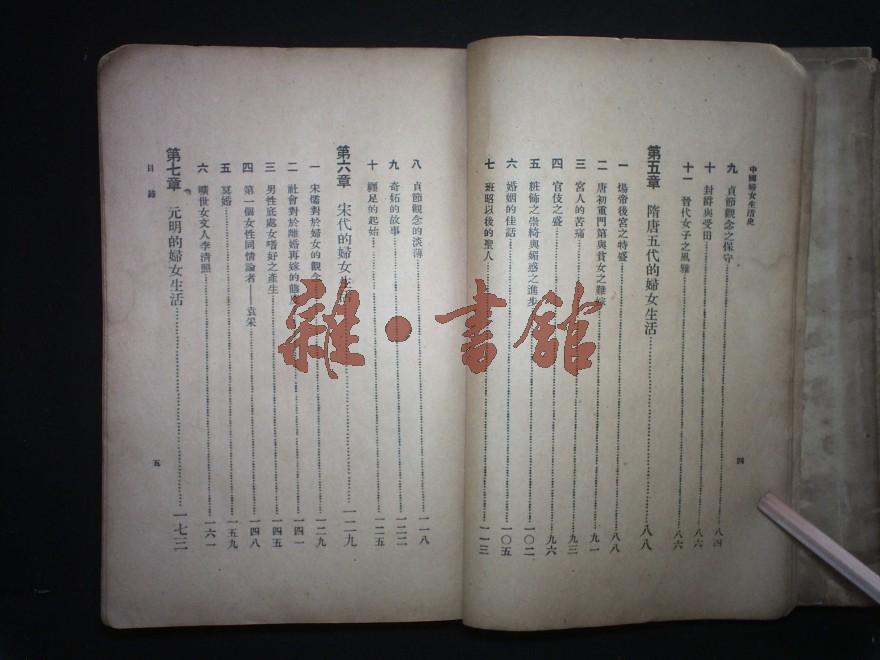 中國婦女生活史
九 貞節觀念之保守……八四
十 封爵與受田……八六
十一 晉代女子之風雅……八六
第五章 隋唐五代的婦女生活……八八
一 煬帝後宮之特盛……八八
二 唐初重門第與貧女之難嫁……九一
三 宮人的苦痛……九三
四 官伎之盛……九六
五 粧飾之崇綺與媚惑之進步……一〇二
六 婚姻的佳話……一〇五
七 班昭以後的聖人……一一三
四
八 貞節觀念的淡薄……一一八
九 奇妬的故事……一二二
十 纏足的起始……一二五
第六章 宋代的婦女生活……一二九
一 宋儒對於婦女的觀念……一二九
二 社會對於離婚再嫁的態度……一四一
三 男性底處女嗜好之產生……一四五
四 第一個女性同情論者——袁采……一四八
五 冥婚……一五九
六 曠世女文人李清照……一六一
第七章 元明的婦女生活……一七三
目錄
五
雜·書館